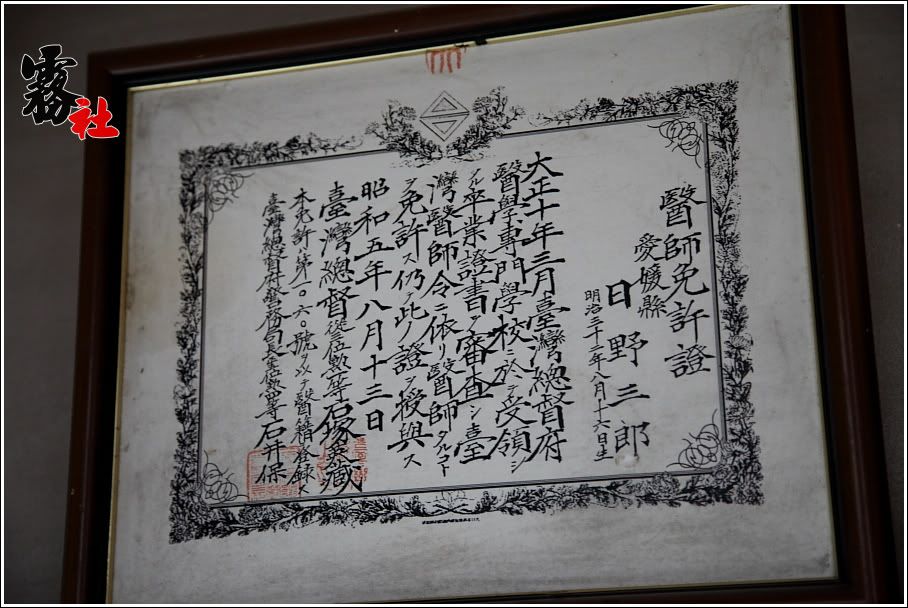 霧社
醫師免許證
愛媛縣
日野三郎
明治三十二年八月十六日生
大正十年三月臺灣總督府
醫學專門學校ニ於テ受領シ
タル卒業證書ヲ審査シ臺
灣醫師令ニ依リ醫師タルコト
ヲ免許ス仍テ此ノ證ヲ授與ス
昭和五年八月十三日
臺灣總督從三位勳一等石塚英藏
本免許ハ第一〇六〇號ヲ以テ醫籍ニ登録ス
臺灣總督府警務局長 石井保